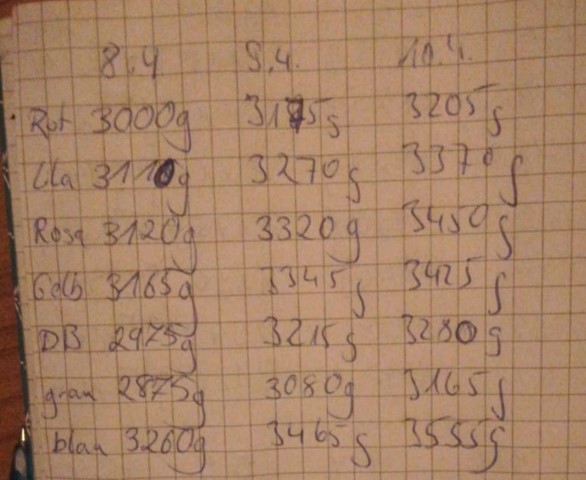 8.4 9.4. 10.4.
Rot 3000g 3175g 3205g
Lila 3110g 3270g 3370g
Rosa 3120g 3320g 3450g
Gelb 3165g 3345g 3425g
DB 2975g 3215g 3280g
grau 2875g 3080g 3165g
blau 3260g 3465g 3555g